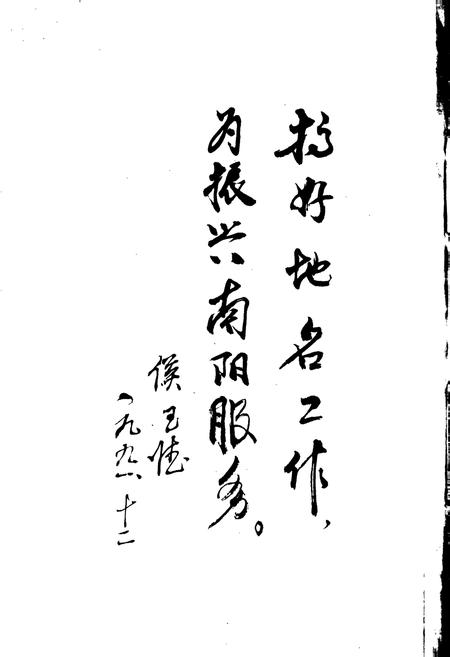 搞好地名工作，
为振兴南阳服务。
侯玉德
一九九一、十二